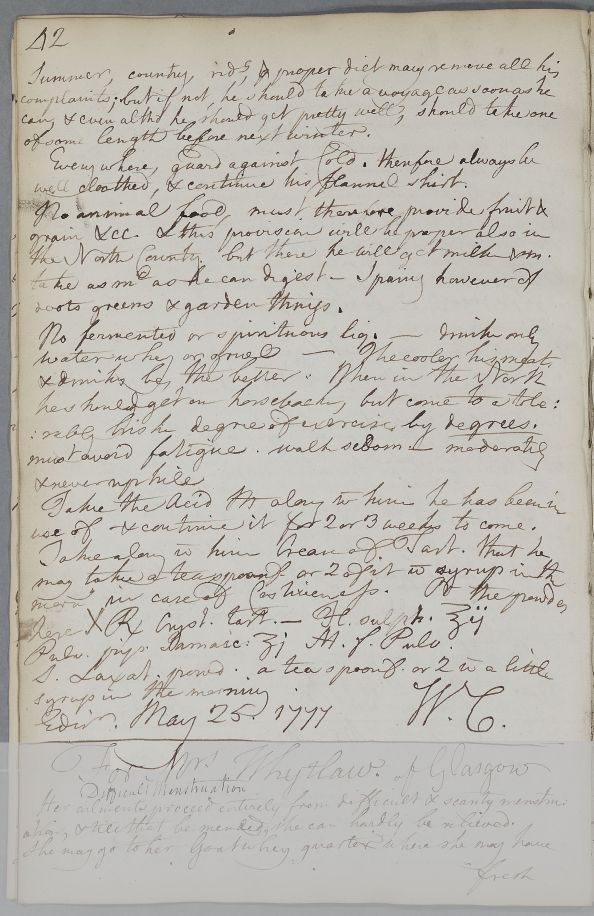 42
Summer, country, rid.g, & proper diet may remove all his
complaints; but if not, he should take a voyage as soon as he
can, & even altho he should get pretty well, should take one
of some length before next winter.
Every where, guard against Cold. therefore always be
well cloathed, & continue his flannel shirt.
No animal food, must, therefore provide fruit &
grain &cc. & this provision will be proper also in
the North County. but there he will get milk &
take as md as he can digest — Sparing however of
roots greens & garden things.
No fermented or spirituous liq. — drink only
water whey or gruel — The cooler his meat
& drinks be, the better: When in the North
he should get on horseback, but come to a tole:
:rably brisk degree of exercise, by degrees.
must avoid fatigue. walk seldom — moderately
& never uphile
Take the Acid along w him he has been in
use of — & continue it for 2 or 3 weeks to come.
Take along w him Cream of Tart. that he
may take a teaspoonf or 2 of it w syrup in the
morng in case of Costiveness. Or the powder
here X ℞ Cryst. tart. — Fl. sulph. ʒij
Pulv. pip. Jamaic: ʒj M. f. Pulv.
S. Laxat. powd. a tea spoonf. or 2 in a little
syrup in the morning
Edinr. May 25. 1777 W. C.
For Mrs Whytlaw. of Glasgow
Difficult Menstruation
Her ailments proceed entirely from difficult & scanty menstru:
ation, & till that be mended, she can hardly be relieved.
She may go to her Goat whey quarters where she may have
fresh